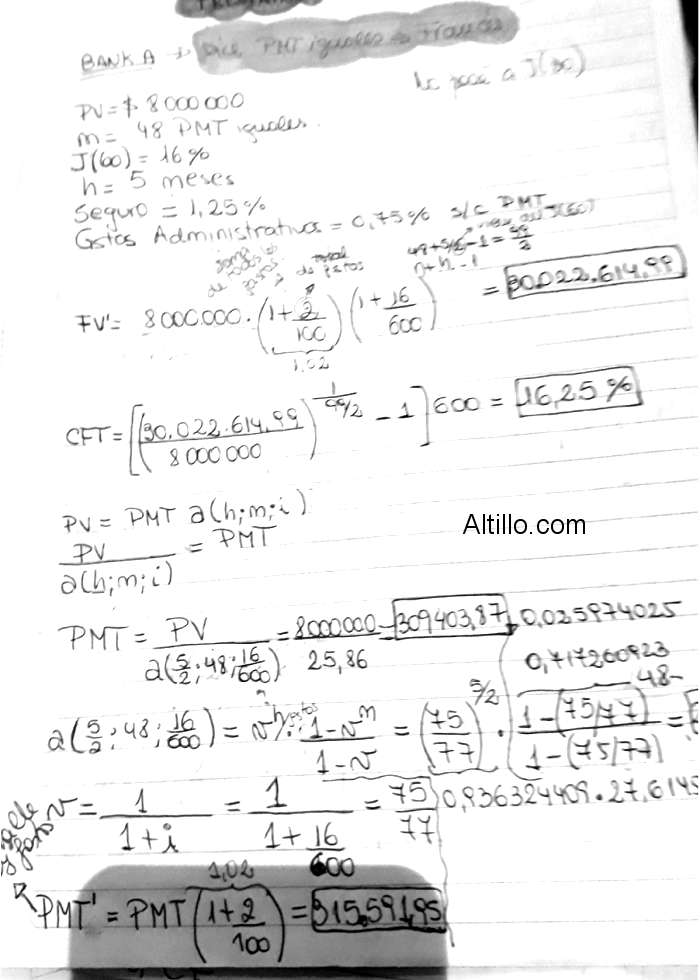 BANK A → dice PMT iguales
PV = $ 8 000 000
m = 48 PMT iguales.
J(60) = 16%
h = 5 meses
Seguro = 1,25%
Gstos Administrativos = 0,75% s/c PMT
48+5/2-1 = 99/2
n+h-1
FV' = 8 000.000. (1+2/100) (1+16/600) = 30.022.614,99
1,02
CFT = [(30.022.614,99/8 000 000)^1/99/2 - 1] 600 = 16,25%
Altillo.com
PV = PMT a(h;m;i)
PV/a(h;m;i) = PMT
PMT = PV/a(5/2;48;16/600) = 8000000/25,86 = 309403,87
0,025974025
0,717260923
a(5/2;48;16/600) = v^h . 1-v^m/1-v = (75/77)^5/2 . 1-(75/77)^48/1-(75/77) =
v = 1/1+i = 1/1+16/600 = 75/77
0,936324409 . 27,6145
1,02
PMT' = PMT (1+2/100) = 315.591,95